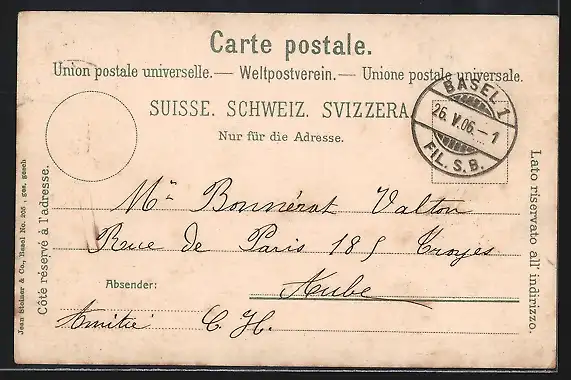 Carte postale.
Union postale universelle. — Weltpostverein. — Unione postale universale.
SUISSE. SCHWEIZ. SVIZZERA.
Nur für die Adresse.
BASEL 1
26. V. 06. – 1
FIL. S. B.
Mr Bonnérat Valton
Rue de Paris 185 Troyes
Absender:
Aube
Amitié C. H.
Côté réservé à l'adresse.
Jean Steiner & Co., Basel No. 205, ges. gesch
Lato riservato all' indirizzo.